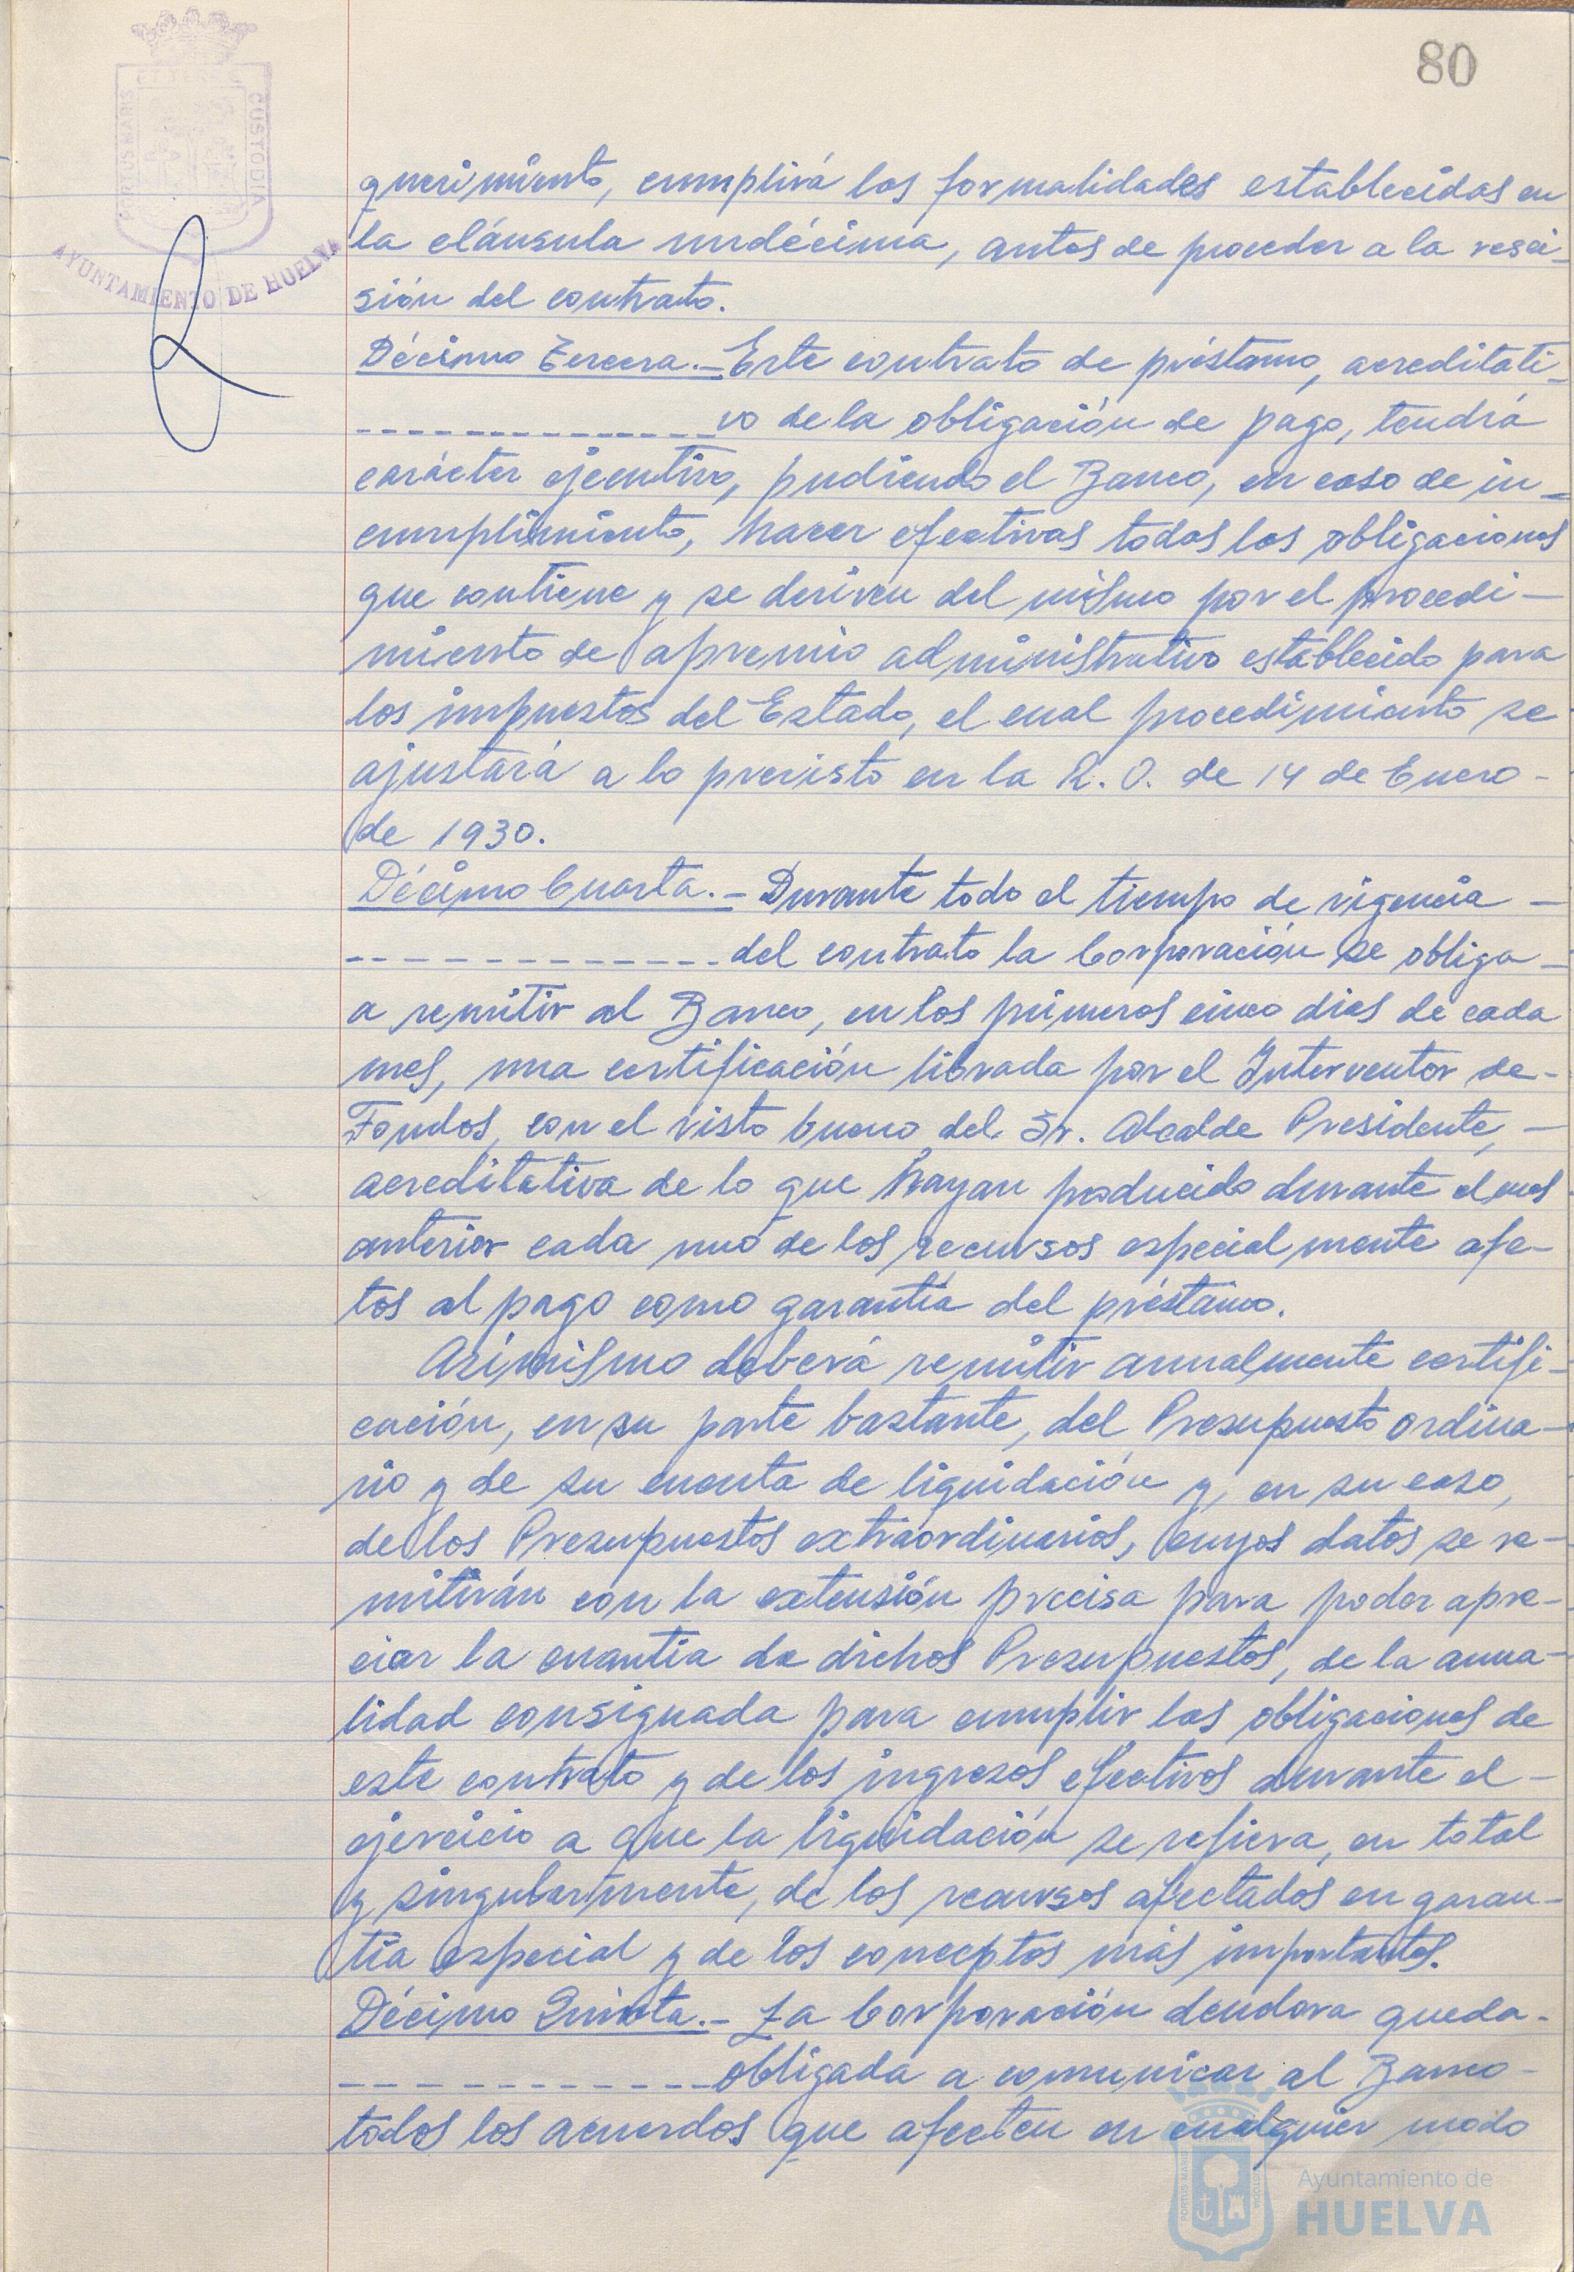 80
PORTUS MARIS ET TERRE CUSTODIA
AYUNTAMIENTO DE HUELVA
querimiento, cumplirá las formalidades establecidas en
la cláusula undécima, antes de proceder a la resci-
sión del contrato.
Décimo Tercera.- Este contrato de préstamo, acreditati-
-------------- vo de la obligación de pago, tendrá
carácter ejecutivo, pudiendo el Banco, en caso de in-
cumplimiento, hacer efectivas todas las obligaciones
que contiene y se deriven del mismo por el procedi-
miento de apremio administrativo establecido para
los impuestos del Estado, el cual procedimiento se
ajustará a lo previsto en la R. O. de 14 de Enero -
de 1930.
Décimo Cuarta.- Durante todo el tiempo de vigencia -
------------- del contrato la Corporación se obliga -
a remitir al Banco, en los primeros cinco dias de cada
mes, una certificación librada por el Interventor de-
Fondos, con el visto bueno del Sr. Alcalde Presidente, -
acreditativa de lo que hayan producido durante el mes
anterior cada uno de los recursos especialmente afe-
tos al pago como garantía del préstamo.
Asimismo deberá remitir anualmente certifi-
cación, en su parte bastante, del Presupuesto ordina-
rio y de su cuenta de liquidación y, en su caso,
de los Presupuestos extraordinarios, cuyos datos se re-
mitirán con la extensión precisa para poder apre-
ciar la cuantía de dichos Presupuestos, de la anua-
lidad consignada para cumplir las obligaciones de
este contrato y de los ingresos efectivos durante el -
ejercicio a que la liquidación se refiera, en total
y singularmente, de los recursos afectados en garan-
tía especial y de los conceptos más importantes.
Décimo Quinta.- La Corporación deudora queda-
------------ obligada a comunicar al Banco -
todos los acuerdos que afecten en cualquier modo
PORTUS MARIS CUSTODIA
Ayuntamiento de
HUELVA